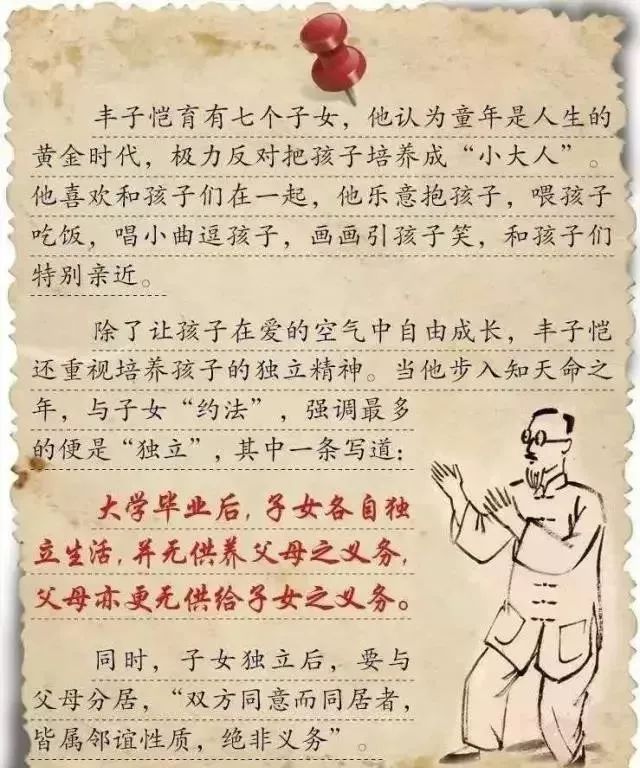 丰子恺育有七个子女，他认为童年是人生的
黄金时代，极力反对把孩子培养成“小大人”。
他喜欢和孩子们在一起，他乐意抱孩子，喂孩子
吃饭，唱小曲逗孩子，画画引孩子笑，和孩子们
特别亲近。
除了让孩子在爱的空气中自由成长，丰子恺
还重视培养孩子的独立精神。当他步入知天命之
年，与子女“约法”，强调最多
的便是“独立”，其中一条写道：
大学毕业后，子女各自独
立生活，并无供养父母之义务，
父母亦更无供给子女之义务。
同时，子女独立后，要与
父母分居，“双方同意而同居者，
皆属邻谊性质，绝非义务”。